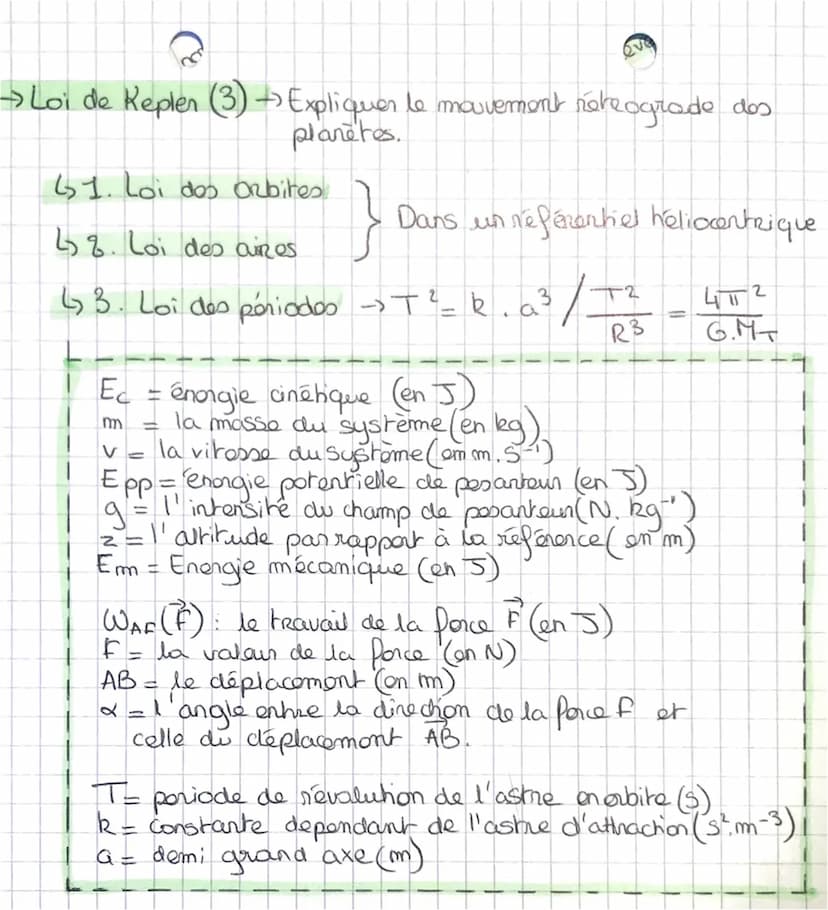 → Loi de Kepler (3) → Expliquer le mouvement rétrograde des
planètes.
↳ 1. Loi des orbites
↳ 2. Loi des aires
} Dans un référentiel héliocentrique
↳ 3. Loi des périodes → T² = k . a³ / T²/R³ = 4π²/G.M_T
Ec = énergie cinétique (en J)
m = la masse du système (en kg)
v = la vitesse du système (em m.s⁻¹)
Epp = énergie potentielle de pesanteur (en J)
g = l'intensité du champ de pesanteur (N. kg⁻¹)
z = l'altitude par rapport à la référence (en m)
Em = Energie mécanique (en J)
W_AF(F⃗) : le travail de la force F⃗ (en J)
F = la valeur de la force (en N)
AB = le déplacement (en m)
α = l'angle entre la direction de la force f et
celle du déplacement A⃗B⃗.
T = periode de révolution de l'astre en orbite (s)
k = constante dependant de l'astre d'attraction (s².m⁻³)
a = demi grand axe (m)